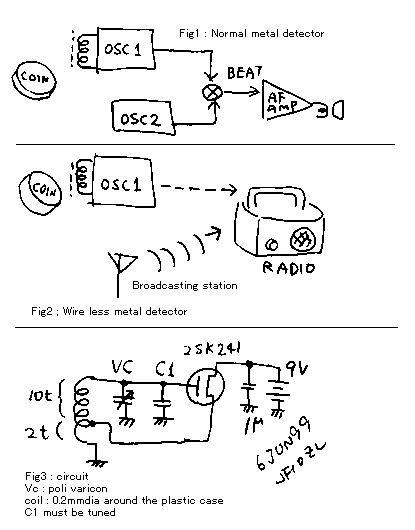 Fig1 : Normal metal detector
COIN
OSC 1
BEAT
OSC2
AF AMP
COIN
OSC1
RADIO
Broadcasting station
Fig2 ; Wire less metal detector
2SK241
VC
C1
9V
10t
2t
1μ
6JUN99
JF1OZL
Fig3 : circuit
Vc : poli varicon
coil : 0.2mmdia around the plastic case
C1 must be tuned